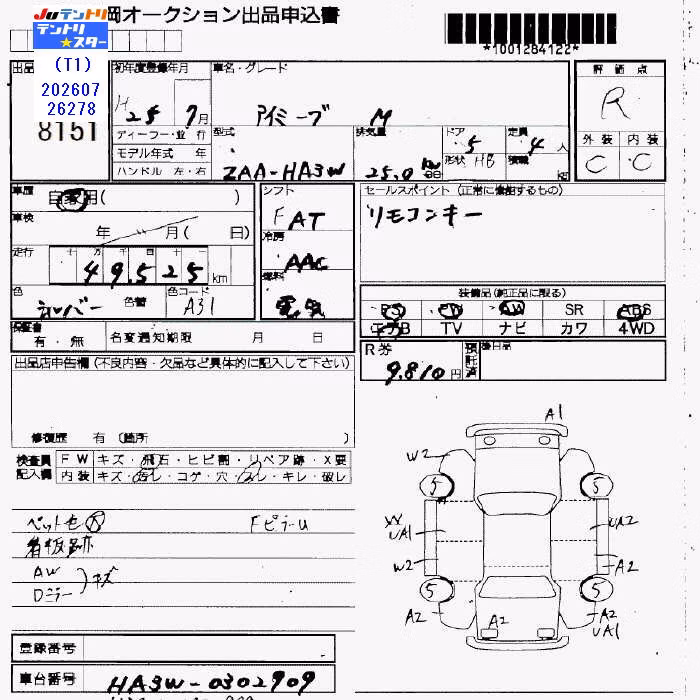 Juテントリ 岡オークション出品申込書
テントリ★スター
*1001284122*
(T1)
202607
26278
出品
8151
初年度登録年月
H 25 年 7月
ディーラー・並行
モデル年式 年
ハンドル 左・右
車名・グレード
アイミーブ M
型式
ZAA-HA3W
排気量
25.0 kw
ドア 5
形状 HB
定員 4人
積載 kg
評価点
R
外装 内装
C C
車歴 自家用( )
車検 年 月( 日)
走行 十万 千百十
49,525 km
色 シルバー 色替 色コード A31
シフト
FAT
冷房
AAC
燃料
電気
セールスポイント(正常に機能するもの)
リモコンキー
装備品(純正品に限る)
PS PW AW SR ABS
エアB TV ナビ カワ 4WD
保証書 有・無
名変通知期限 月 日
R券 9,810円
預託済
後日品
出品店申告欄(不良内容・欠品など具体的に記入して下さい)
修復歴 有 (箇所 )
検査員記入欄
FW キズ・飛石・ヒビ割・リペア跡・X要
内装 キズ・汚レ・コゲ・穴・スレ・キレ・破レ
ペット毛 R FピラーU
看板跡
AW
Dミラー )キズ
A1
W2
5 5
XX
UA1
UA2
W2
A2
5 5
A2
A2
A2
UA1
登録番号
車台番号 HA3W-0302909